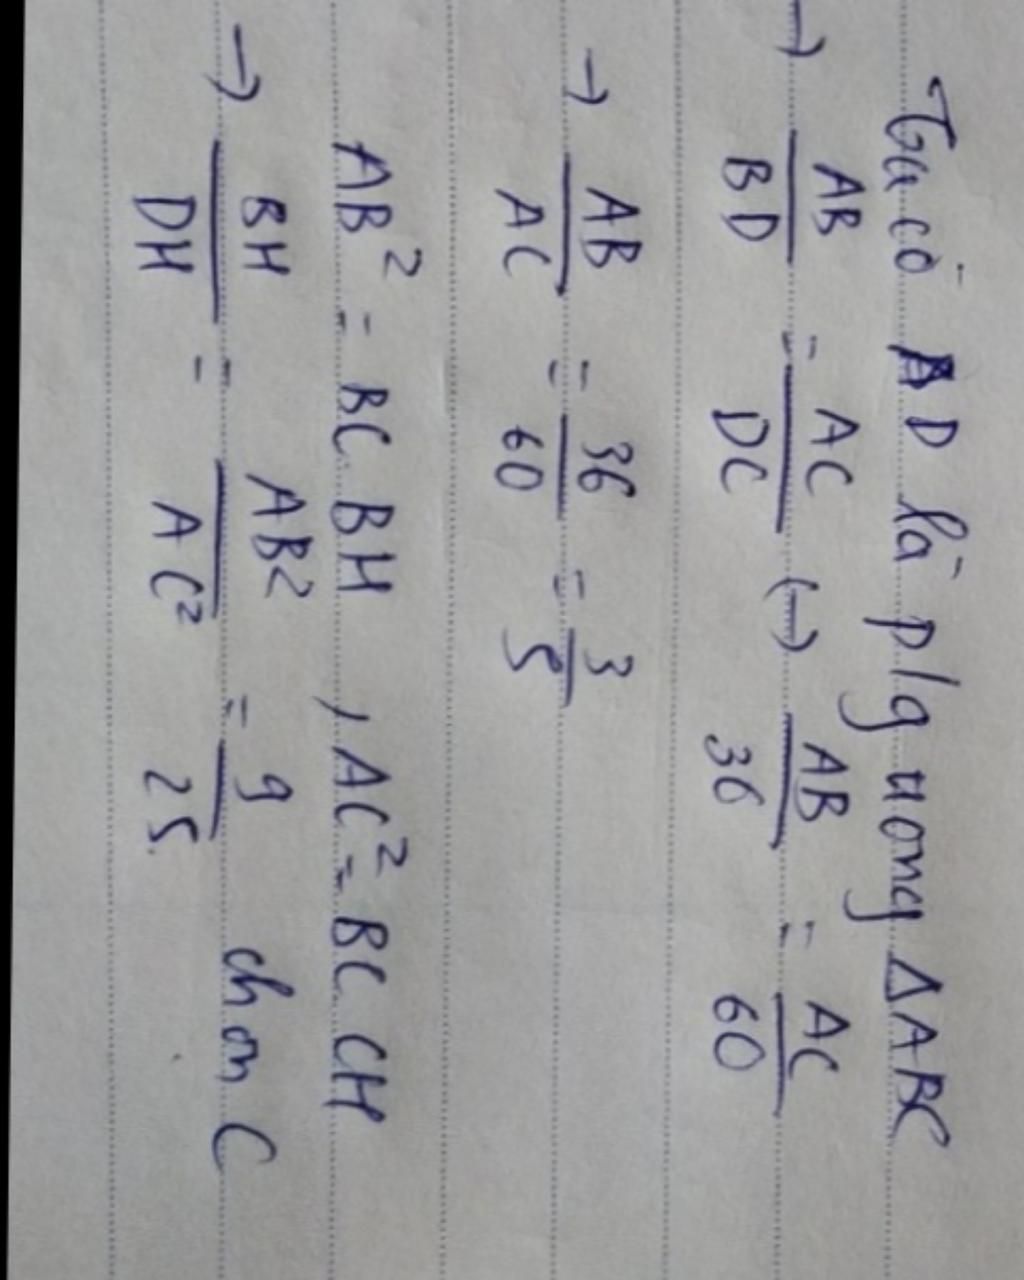 Ta có AD là p/g trong ΔABC
→ AB/BD = AC/DC (→) AB/36 = AC/60
→ AB/AC = 36/60 = 3/5
AB² = BC.BH, AC² = BC.CH
→ BH/DH = AB²/AC² = 9/25. chọn C